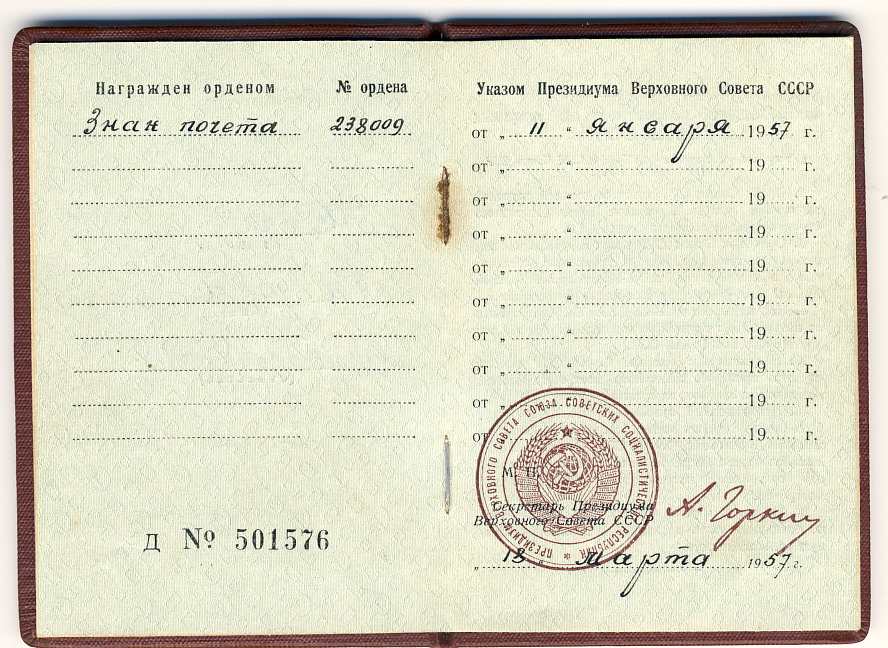 Награжден орденом № ордена
Знак почета 238009
Д № 501576
Указом Президиума Верховного Совета СССР
от „ 11 “ января 1957 г.
от „ “ 19 г.
от „ “ 19 г.
от „ “ 19 г.
от „ “ 19 г.
от „ “ 19 г.
от „ “ 19 г.
от „ “ 19 г.
от „ “ 19 г.
от „ “ 19 г.
ПРЕЗИДИУМ ВЕРХОВНОГО СОВЕТА СОЮЗА СОВЕТСКИХ СОЦИАЛИСТИЧЕСКИХ РЕСПУБЛИК *
М. П.
Секретарь Президиума
Верховного Совета СССР
А. Горкин
„ 18 “ марта 1957 г.